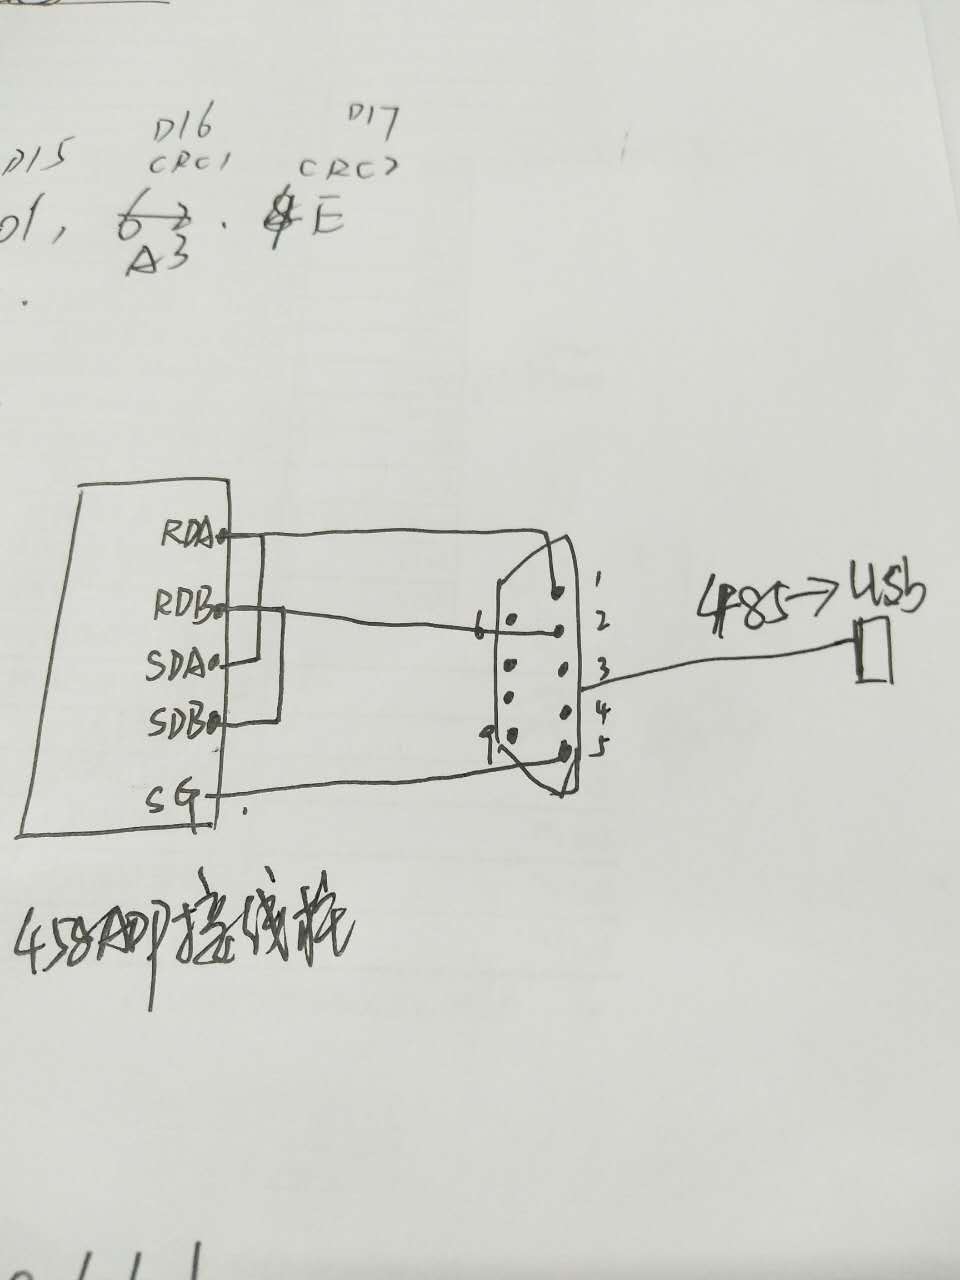 D15 D16 D17
CRC1 CRC2
01, E
A3
RDA
RDB
SDA
SDB
SG
1
6 2
3
4
9 5
485→USb
458ADP接线桩